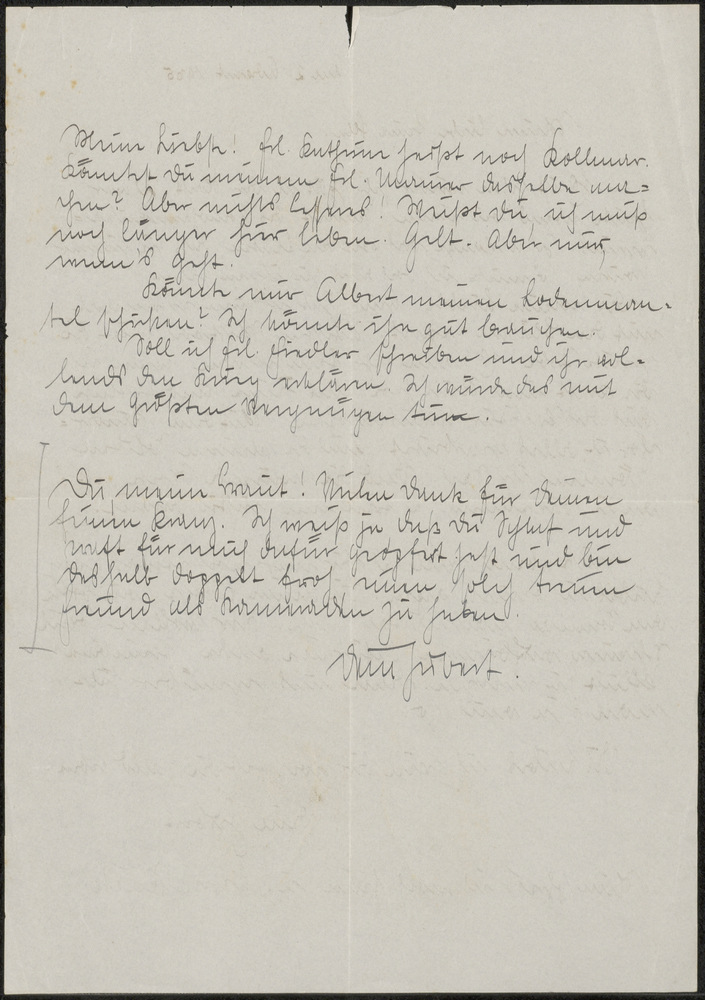 Meine Liebste! Frl. Kathrine heißt noch Kollmar.
Könntest Du meinem Frl. Maurer dasselbe ma=
chen? Aber nichts besseres! Weißt Du, ich muß
noch länger hier leben. Gelt. Aber nur,
wenn's geht.
Könnte mir Albert meinen Lodenman=
tel schicken? Ich könnte ihn gut brauchen.
Soll ich Frl. Fiedler schreiben und ihr vol=
lends den Krieg erklären. Ich würde das mit
dem größten Vergnügen tun.
Du, meine Braut! Vielen Dank für deinen
feinen Kranz. Ich weiß ja daß Du Schlaf und
Kraft für mich dafür geopfert hast und bin
deshalb doppelt froh einen solch treuen
Freund als Kameraden zu haben.
Dein Hubert.